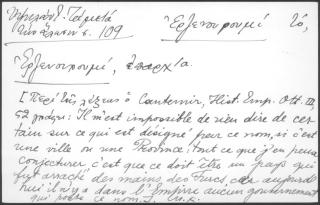 109
Ἐρζενουρουμί τὸ,
Ἐρζενουρουμί, ἐπαρχία.
[Περὶ τῆς λέξεως ὁ Cantemir, Hist. Emp. Ott. III,
52 γράφει: Il m'est impossible de rien dire de cer
tain sur ce qui est désigné par ce nom, si c'est
une ville ou une Province: tout ce que j'en peux
conjecturer c'est que ce doit être un pays qui
fut arraché des mains des Turcs, car aujourd'
hui il n'y a dans l'Empire aucun gouvernement
qui porte ce nom.]